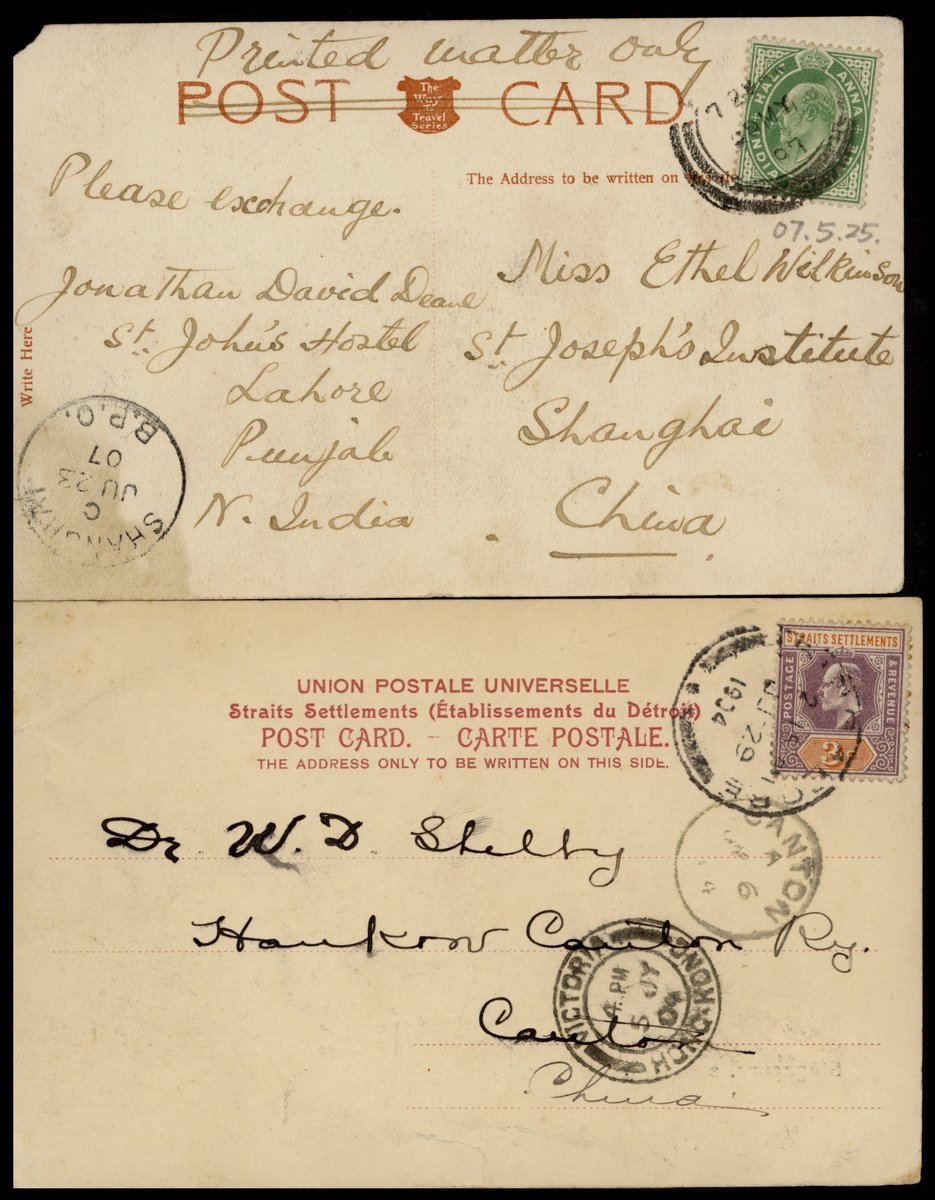 Printed matter only
POST CARD
The
Way
to
Travel
Series
HALF ANNA
INDIA
MY
07
07.5.25.
The Address to be written on
Please exchange.
Jonathan David Deane
St. John's Hostel
Lahore
Punjab
N. India
Write Here
Miss Ethel Wilkinson
St. Joseph's Institute
Shanghai
China
SHANGHAI
C
JU 23
07
B.P.O.
UNION POSTALE UNIVERSELLE
Straits Settlements (Établissements du Détroit)
POST CARD. – CARTE POSTALE.
THE ADDRESS ONLY TO BE WRITTEN ON THIS SIDE.
STRAITS SETTLEMENTS
POSTAGE & REVENUE
29
1904
CANTON
A
6
Dr. W. D. Shelby
Hankow Canton Ry.
Canton
China
VICTORIA
4. PM
5 JY
04
HONG-KONG